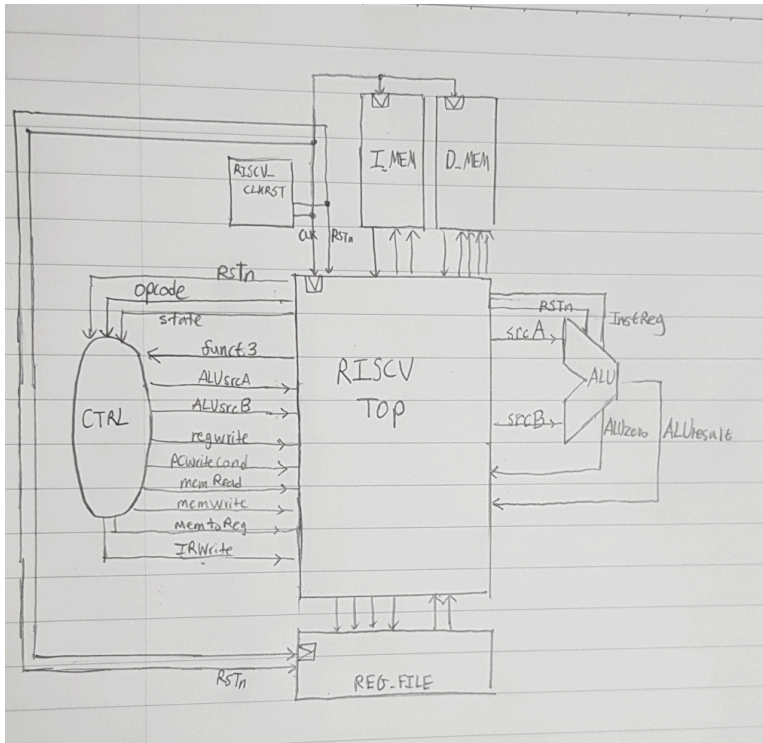 RISCV_
CLKRST
I_MEM
D_MEM
CLK
RSTn
RSTn
opcode
state
funct3
ALUsrcA
ALUsrcB
regwrite
PCwriteCond
memRead
memwrite
MemtoReg
IRWrite
CTRL
RISCV
TOP
RSTn
InstReg
srcA
ALU
srcB
ALUzero
ALUresult
RSTn
REG_FILE